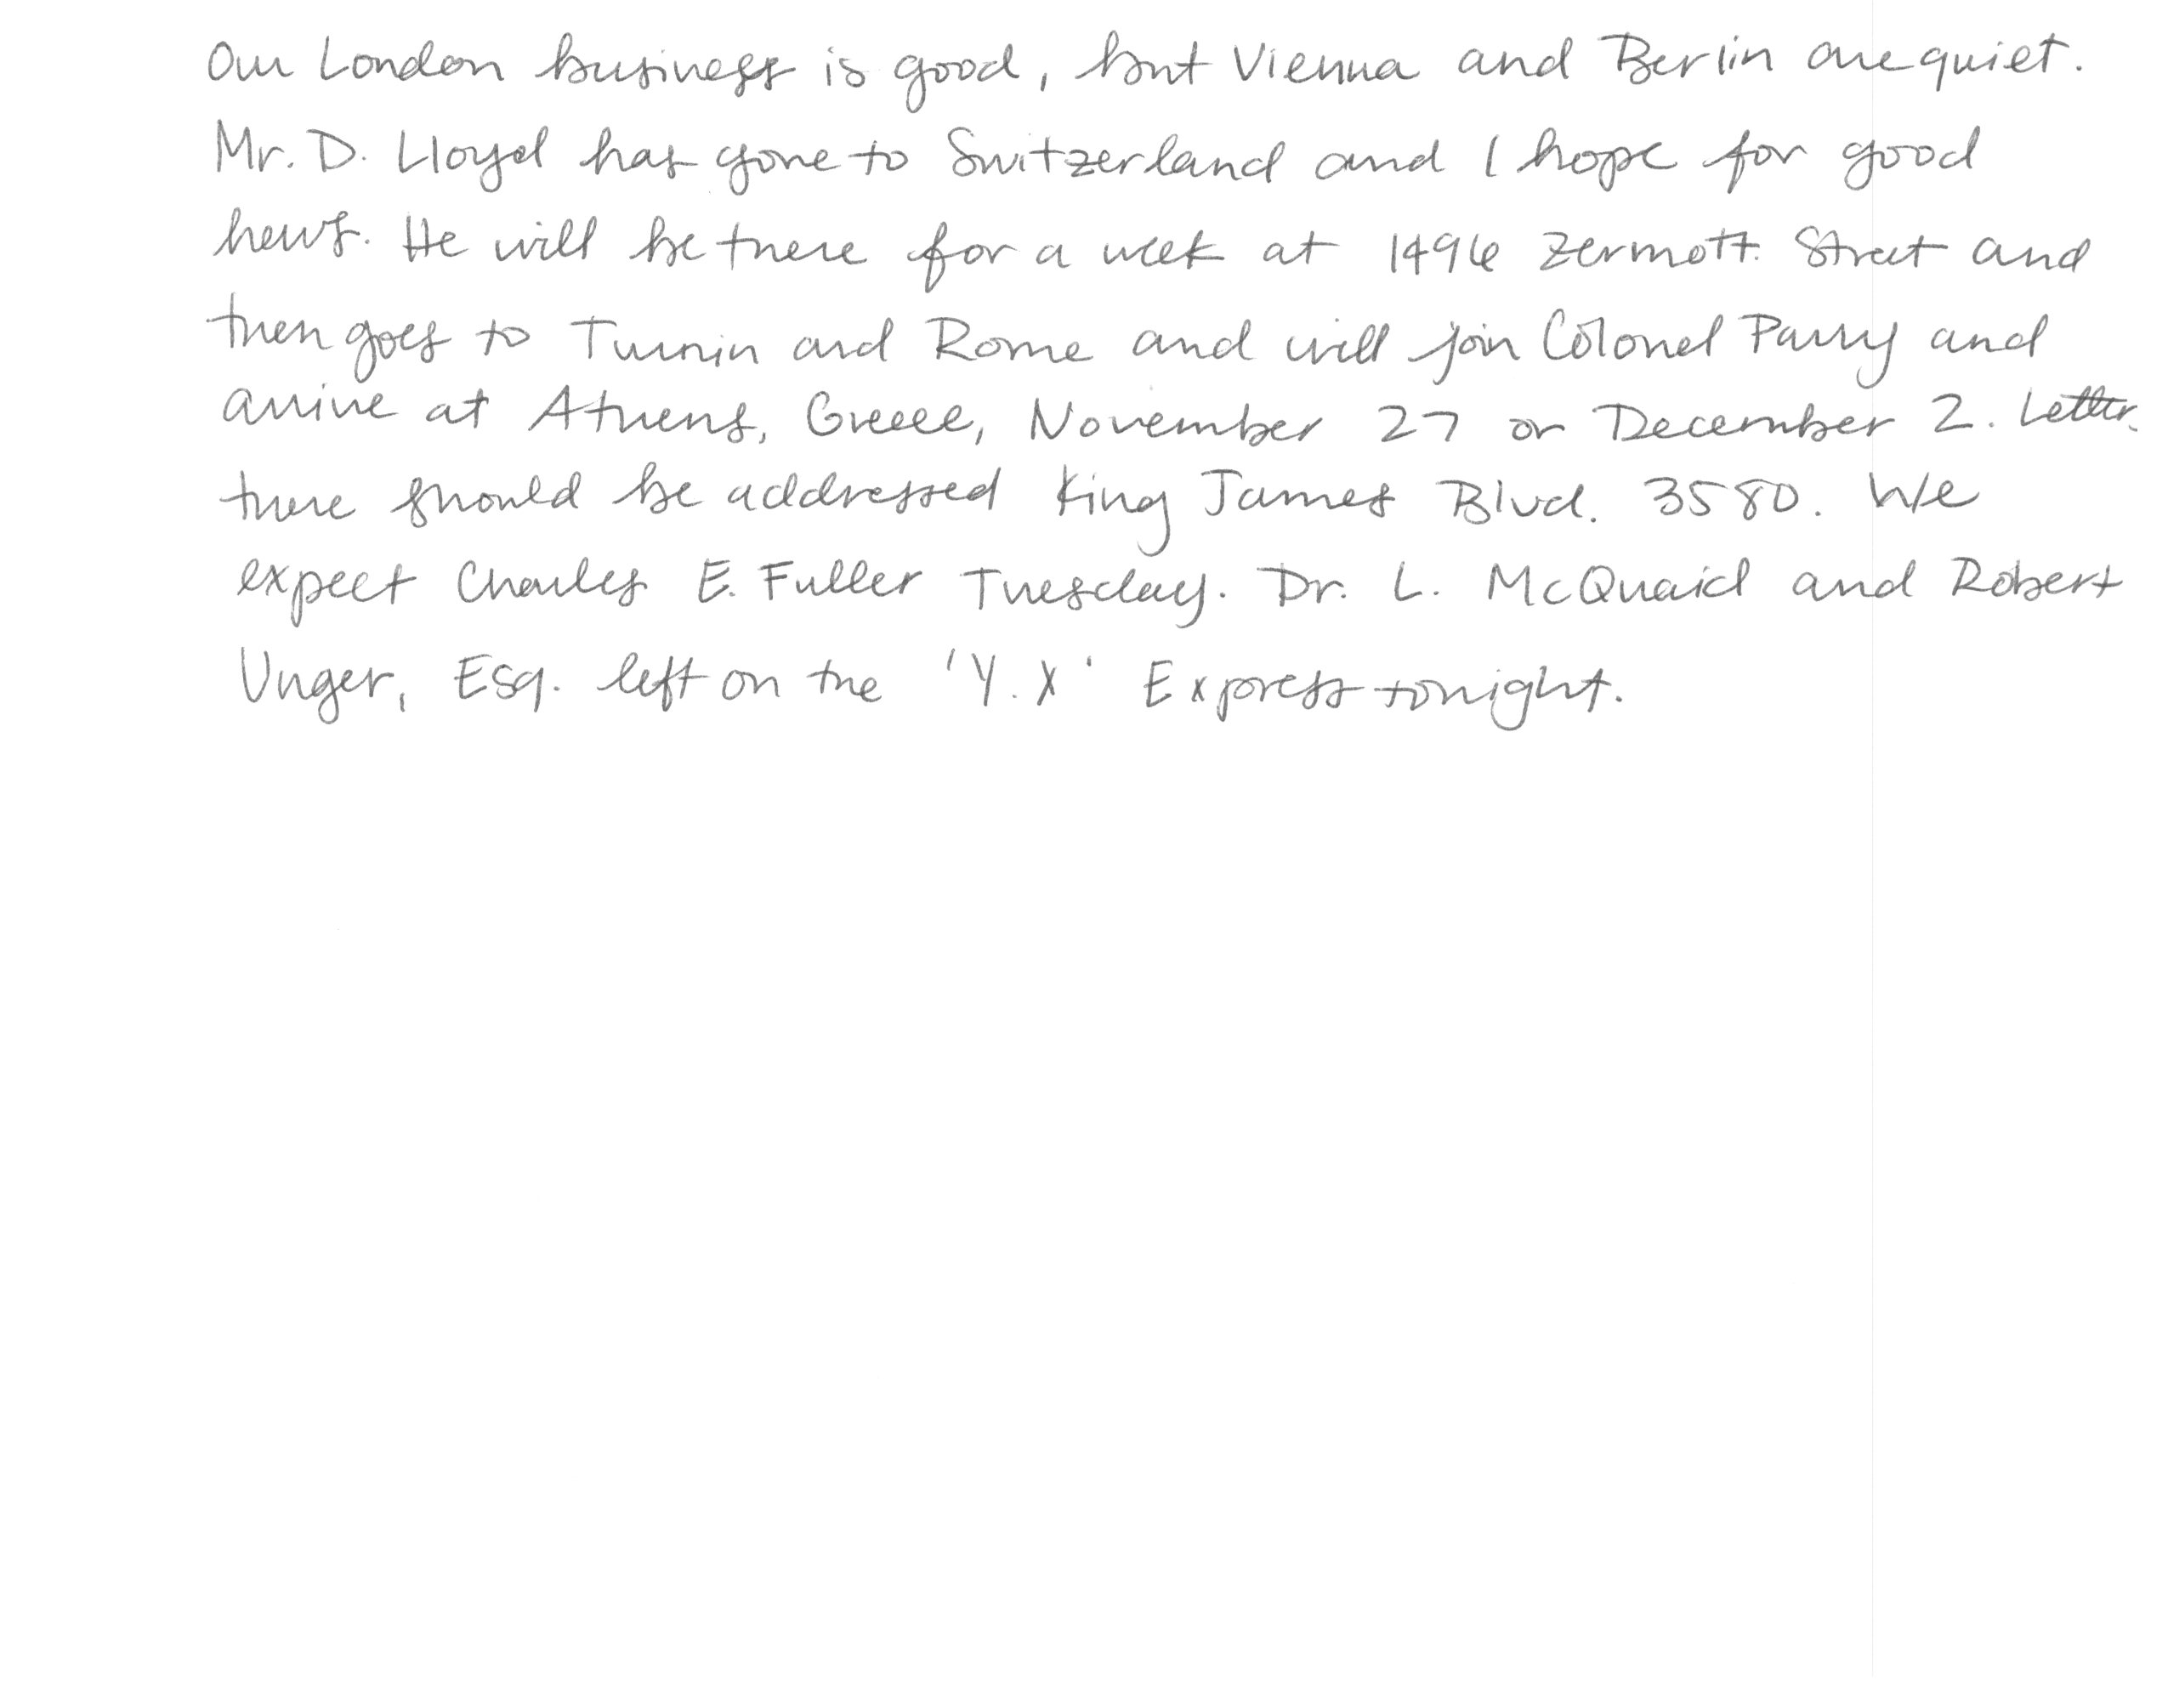 Our London business is good, but Vienna and Berlin are quiet.
Mr. D. Lloyd has gone to Switzerland and I hope for good
news. He will be there for a week at 1496 Zermott Street and
then goes to Turin and Rome and will join Colonel Parry and
arrive at Athens, Greece, November 27 or December 2. Letter
there should be addressed King James Blvd. 3580. We
expect Charles E. Fuller Tuesday. Dr. L. McQuaid and Robert
Unger, Esq. left on the 'Y.X' Express tonight.